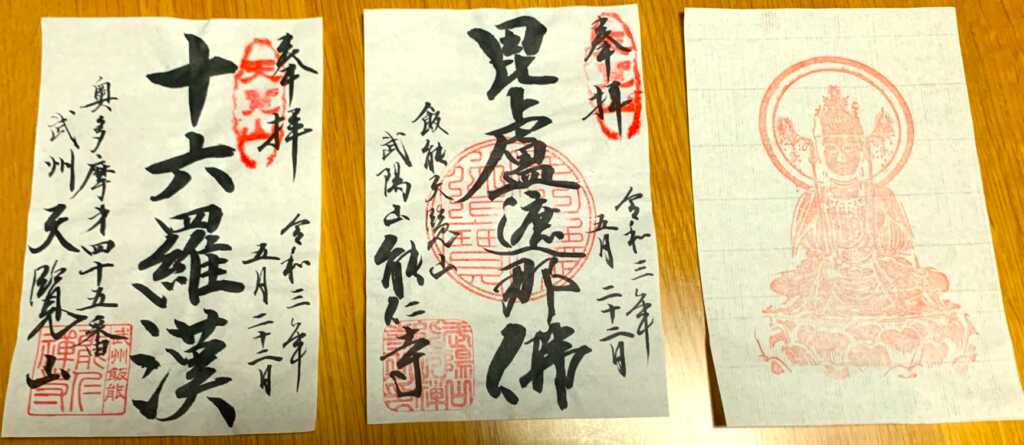 奉拝
天覧山
令和三年
五月二十二日
十六羅漢
奥多摩才四十五番
武州 天覧山
武州飯能
奉拝
令和三年
五月二十二日
毘盧遮那佛
飯能天覧山
武陽山 能仁寺